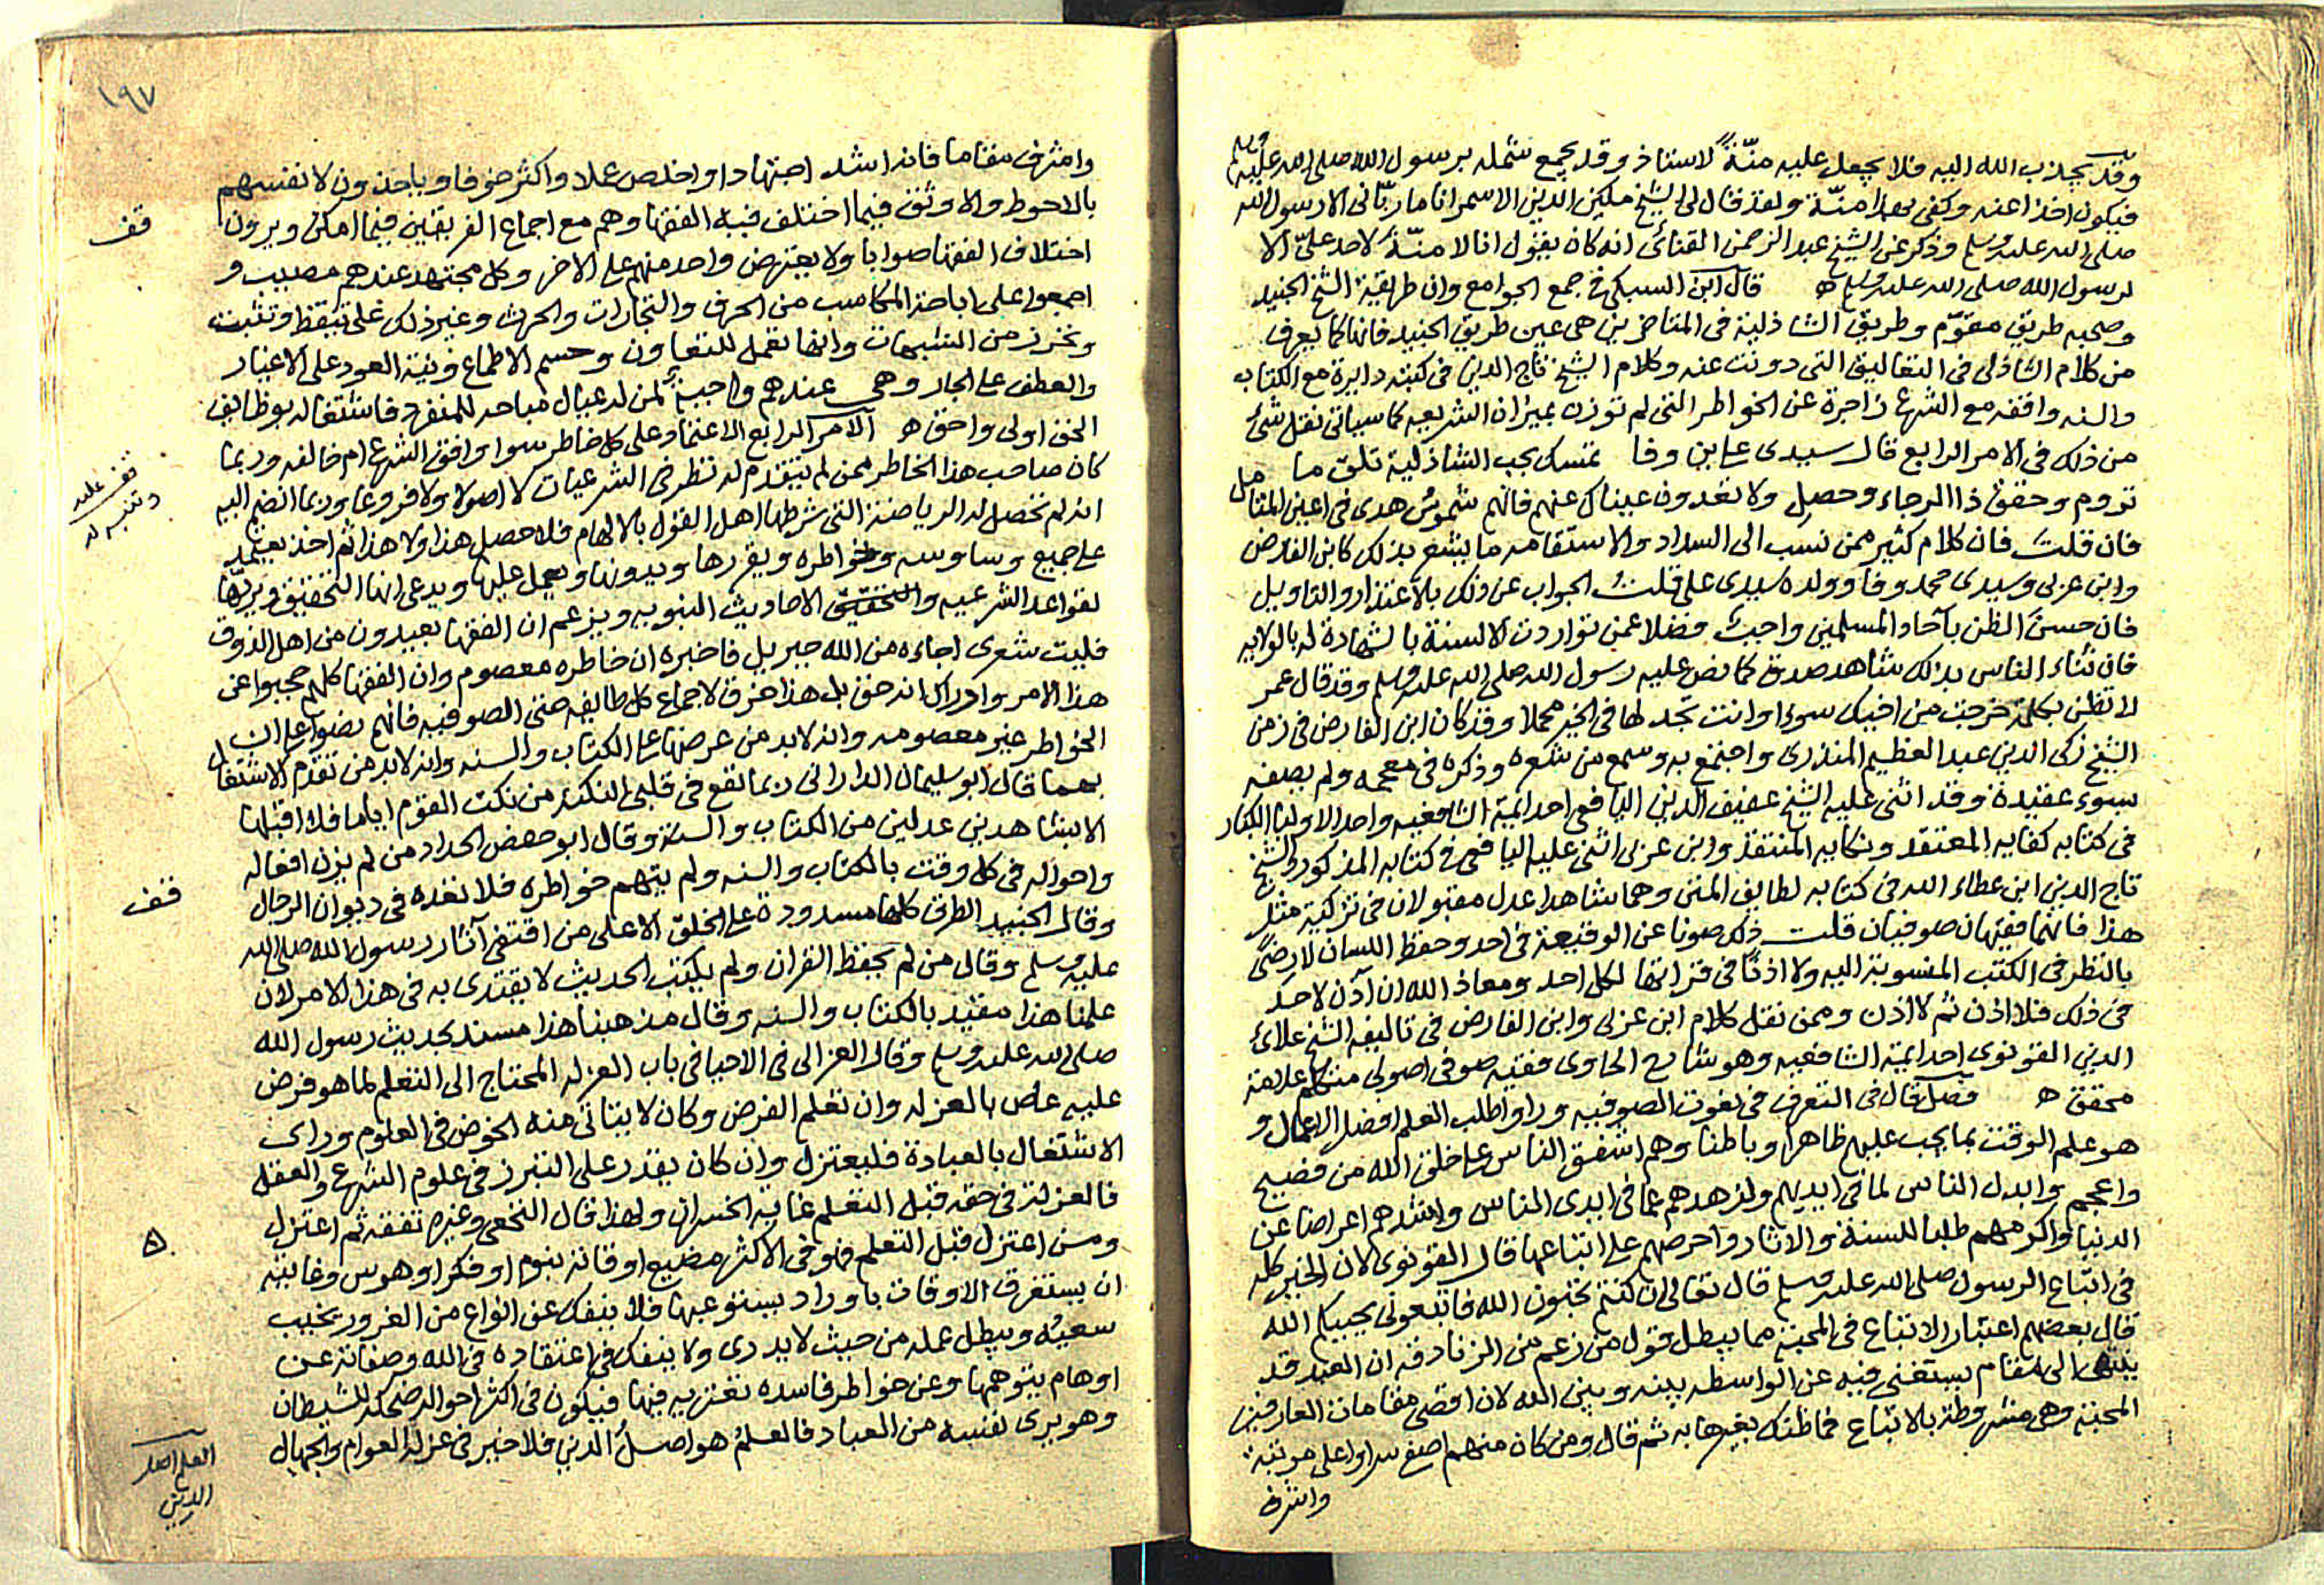 وقد يجذب الله اليه فلا يجعل عليه منّةً لاستاذ وقد يجمع شمله برسول الله صلى الله عليه وسلم
فيكون اخذا عنه وكفى بهذا منّة ولقد قال لى الشيخ مكين الدين الاسمر انا ما ربّانى الا رسول الله
صلى الله عليه وسلم وذكر عن الشيخ عبد الرحمن القنائى انه كان يقول انا لا منّةً لاحد علىّ الا
لرسول الله صلى الله عليه وسلم ه قال ابن السبكى فى جمع الجوامع وان طريقة الشيخ الجنيد
وصحبه طريق مقوّم وطريق الشاذلية فى المتاخرين هى عين طريق الجنيد فانها كما يعرف
من كلام الشاذلى فى التعاليق التى دونت عنه وكلام الشيخ تاج الدين فى كتبه دايرة مع الكتاب
والسنه واقفه مع الشرع زاجرة عن الخواطر التى لم توزن بميزان الشريعه كما سياتى نقل شئ
من ذلك فى الامر الرابع قال سيدى على بن وفا تمسك بحب الشاذلية تلق ما
تروم وحقق ذا الرجاء وحصل ولا تعدون عيناك عنهم فانهم شموسُ هدى فى اعين المتامل
فان قلت فان كلام كثير ممن نسب الى السداد والاستقامه ما يبشع بذلك كابن الفارض
وابن عربى وسيدى محمد وفا وولده سيدى على قلتُ الجواب عن ذلك بالاعتذار والتاويل
فان حسن الظن بآحاد المسلمين واجبٌ فضلا عمن تواردت الالسنة بالشهادة له بالولايه
فان ثناء الناس بذلك شاهد صدق كما نص عليه رسول الله صلى الله عليه وسلم وقد قال عمر
لا تظن بكلمة خرجت من اخيك سوءا وانت تجد لها فى الخير محملا وقد كان ابن الفارض فى زمن
الشيخ زكى الدين عبد العظيم المنذرى واجتمع به وسمع من شعره وذكره فى معجمه ولم يصفه
بسوء عقيدة وقد اثنى عليه الشيخ عفيف الدين اليافعى احد ايمة الشافعيه واحد الاوليا الكبار
فى كتابه كفايه المعتقد ونكايه المنتقد وابن عربى اثنى عليه اليافعى فى كتابه المذكور والشيخ
تاج الدين ابن عطاء الله فى كتابه لطايف المنن وهما شاهدا عدل مقبولان فى تزكية مثل
هذا فانهما فقيهان صوفيان قلت ذلك صونا عن الوقيعة فى احد وحفظ اللسان لا رضىً
بالنظر فى الكتب المنسوبة اليه ولا اذنًا فى قراتها لكل احد ومعاذ الله ان آذن لاحد
فى ذلك فلا اذن ثم لا اذن وممن نقل كلام ابن عربى وابن الفارض فى تاليفه الشيخ علائ
الدين القونوى احد ايمة الشافعيه وهو شارح الحاوى فقيه صوفى اصولى متكلم علامة
محقق ه فصل قال فى التعرف فى نعوت الصوفيه وراوا طلب العلم افضل الاعمال و
هو علم الوقت بما يجب عليهم ظاهرا وباطنا وهم اشفق الناس على خلق الله من فصيح
واعجم وابدل الناس لما فى ايديهم وازهدهم عما فى ايدى الناس واشدهم اعراضا عن
الدنيا واكرمهم طلبا للسنة والاثار واحرصهم على اتباعها قال القونوى لان الخير كله
فى اتّباع الرسول صلى الله عليه وسلم قال تعالى ان كنتم تحبون الله فاتبعونى يحببكم الله
قال بعضهم اعتبار الاتباع فى المحبة مما يبطل قول من زعم من الزنادقه ان العبد قد
ينتهى الى مقام يستغنى فيه عن الواسطه بينه وبين الله لان اقصى مقامات العارفين
المحبة وهى مشروطة بالاتباع فما ظنك بغيرها به ثم قال ومن كان منهم اصفى سرا واعلى مرتبة
واشرف
١٩٧
واشرف مقاما فانه اشد اجتهادا واخلص عملا واكثر خوفا وياخذون لانفسهم
بالاحوط والاوثق فيما اختلف فيه الفقها وهم مع اجماع الفريقين فيما امكن ويرون
اختلاف الفقها صوابا ولا يعترض واحد منهم على الاخر وكل مجتهد عندهم مصيب و
اجمعوا على اباحة المكاسب من الحرف والتجارات والحرث وغير ذلك على تيقظ وتثبت
وتحرز من الشبهات وانها تعمل للتعاون وحسم الاطماع ونية العود على الاغيار
والعطف على الجار وهى عندهم واجبةٌ لمن له عيال مباحه للمنفرد فاشتغاله بوظايف
الحق اولى واحق ه الامر الرابع الاعتماد على كل خاطر سوا وافق الشرع ام خالفه وربما
كان صاحب هذا الخاطر ممن لم يتقدم له نظر فى الشرعيات لا اصولا ولا فروعا وربما انضم اليه
انه لم تحصل له الرياضة التى شرطها اهل القول بالالهام فلا حصل هذا ولا هذا ثم اخذ يعتمد
على جميع وساوسه وخواطره ويقررها ويدونها ويعمل عليها ويدعى انها التحقيق ويرد بها
لقواعد الشرعيه والاحاديث النبويه ويزعم ان الفقها بعيدون من اهل الذوق
فليت شعرى اجاءه من الله جبريل فاخبره ان خاطره معصوم وان الفقها كلهم حجبوا عن
هذا الامر وادراك انه حق بل هذا خرق لاجماع كل طايفه حتى الصوفيه فانهم نصوا على ان
الخواطر غير معصومه وانه لا بد من عرضها على الكتاب والسنه وانه لا بد من تقدم الاشتغال
بهما قال ابو سليمان الدارانى ربما تقع فى قلبى النكتة من نكت القوم اياما فلا اقبلها
الا بشاهدين عدلين من الكتاب والسنة وقال ابو حفص الحداد من لم يزن افعاله
واحواله فى كل وقت بالكتاب والسنه ولم يتهم خواطره فلا نعده فى ديوان الرجال
وقال الجنيد الطرق كلها مسدودة على الخلق الا على من اقتفى آثار رسول الله صلى الله
عليه وسلم وقال من لم يحفظ القران ولم يكتب الحديث لا يقتدى به فى هذا الامر لان
علمنا هذا مقيّد بالكتاب والسنه وقال مذهبنا هذا مسند بحديث رسول الله
صلى الله عليه وسلم وقال الغزالى فى الاحيا فى باب العزله المحتاج الى التعلم لما هو فرض
عليه عاص بالعزله وان تعلم الفرض وكان لا يتاتّى منه الخوض فى العلوم وراى
الاشتغال بالعبادة فليعتزل وان كان يقدر على التبرز فى علوم الشرع والعقل
فالعزلة فى حقه قبل التعلم غاية الخسران ولهذا قال النخعى وغيره تفقه ثم اعتزل
ومن اعتزل قبل التعلم فهو فى الاكثر مضيع اوقاته بنوم او فكر او هوس وغايته
ان يستغرق الاوقات باوراد يستوعبها فلا ينفك عن انواع من الغرور يخيب
سعيه ويبطل عمله من حيث لا يدرى ولا ينفك فى اعتقاده فى الله وصفاته عن
اوهام يتوهمها وعن خواطر فاسده تعتريه فيها فيكون فى اكثر احواله ضحكة للشيطان
وهو يرى نفسه من العباد فالعلمُ هو اصلُ الدين فلا خير فى عزلة العوام والجهال
قف
قف عليه
وتنبه له
قف
العلم اصل
الدين